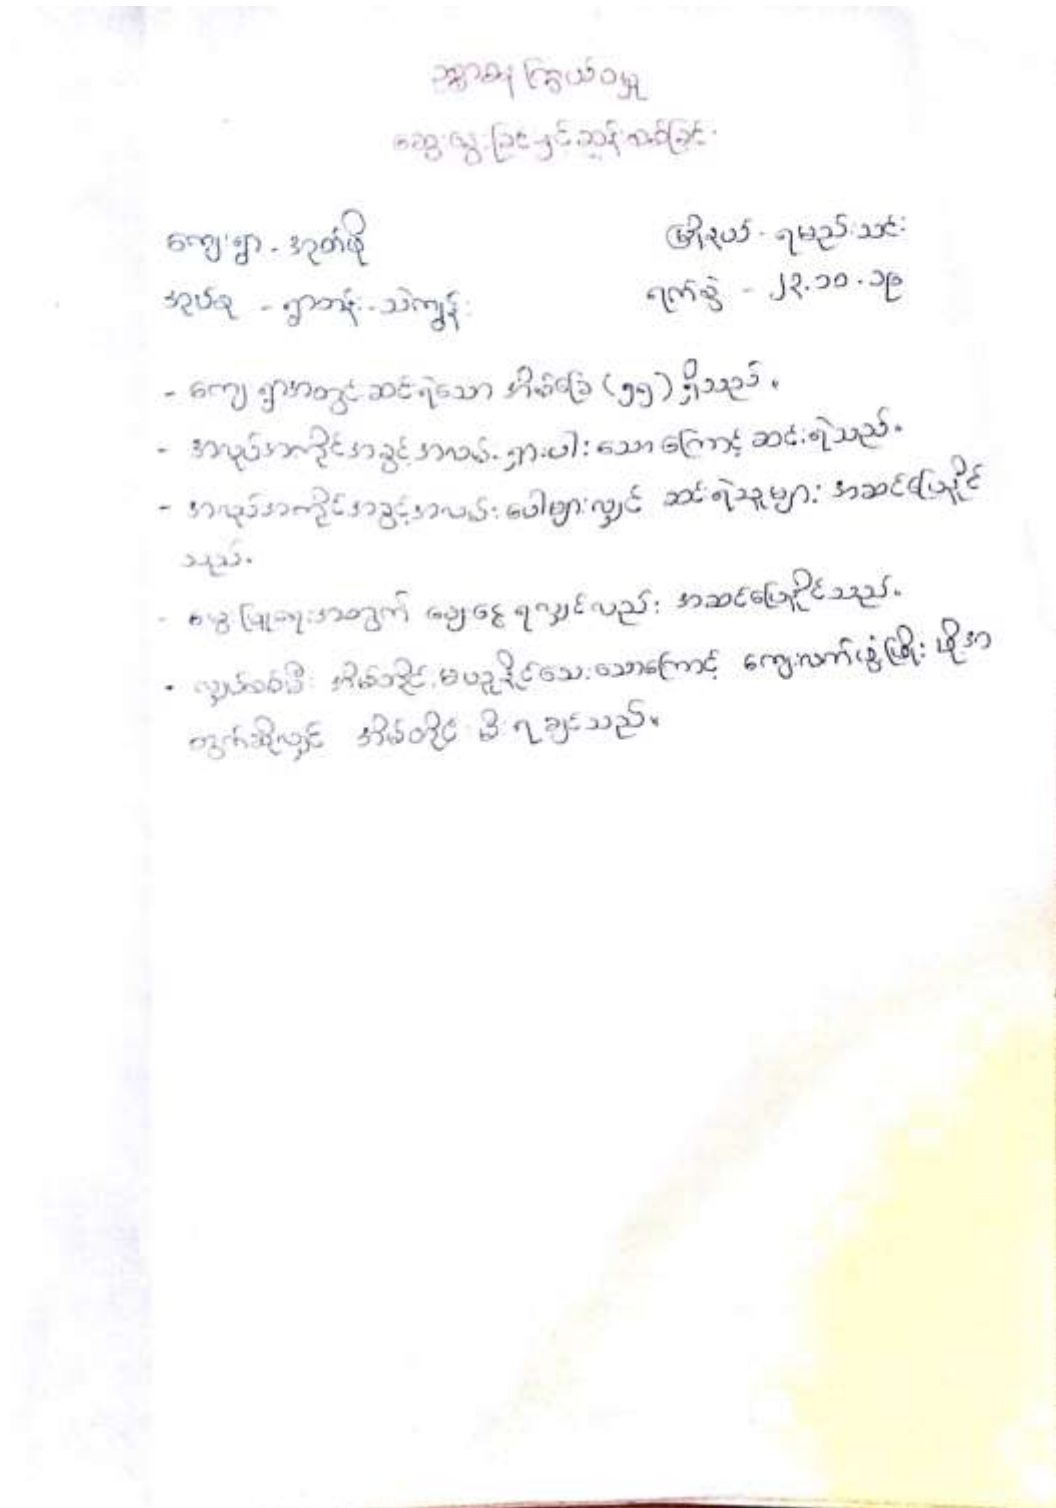 ဥစ္စာဓန ကြွယ်ဝမှု
ဆွေးနွေးခြင်းနှင့်ညွှန်းထစ်ခြင်း
ကျေးရွာ - အုတ်ဖို မြို့နယ် - ရမည်းသင်း
အုပ်စု - ရွာတန်း သဲကျွန်း ရက်စွဲ - ၂၃.၁၀.၁၉
- ကျေးရွာအတွင်းဆင်းရဲသော အိမ်ခြေ (၅၅) ရှိသည်။
- အလုပ်အကိုင်အခွင့်အလမ်း ရှားပါးသောကြောင့် ဆင်းရဲသည်။
- အလုပ်အကိုင်အခွင့်အလမ်းပေါများလျှင် ဆင်းရဲသူများ အဆင်ပြေနိုင်
သည်။
- မွေးမြူရေးအတွက် ချေးငွေ ရလျှင်လည်း အဆင်ပြေနိုင်သည်။
- လျှပ်စစ်မီး အိမ်တိုင်းမယူနိုင်သေးသောကြောင့် ကျေးလက်ဖွံ့ဖြိုးဖို့အ
တွက်ဆိုလျှင် အိမ်တိုင်း မီးရချင်သည်။